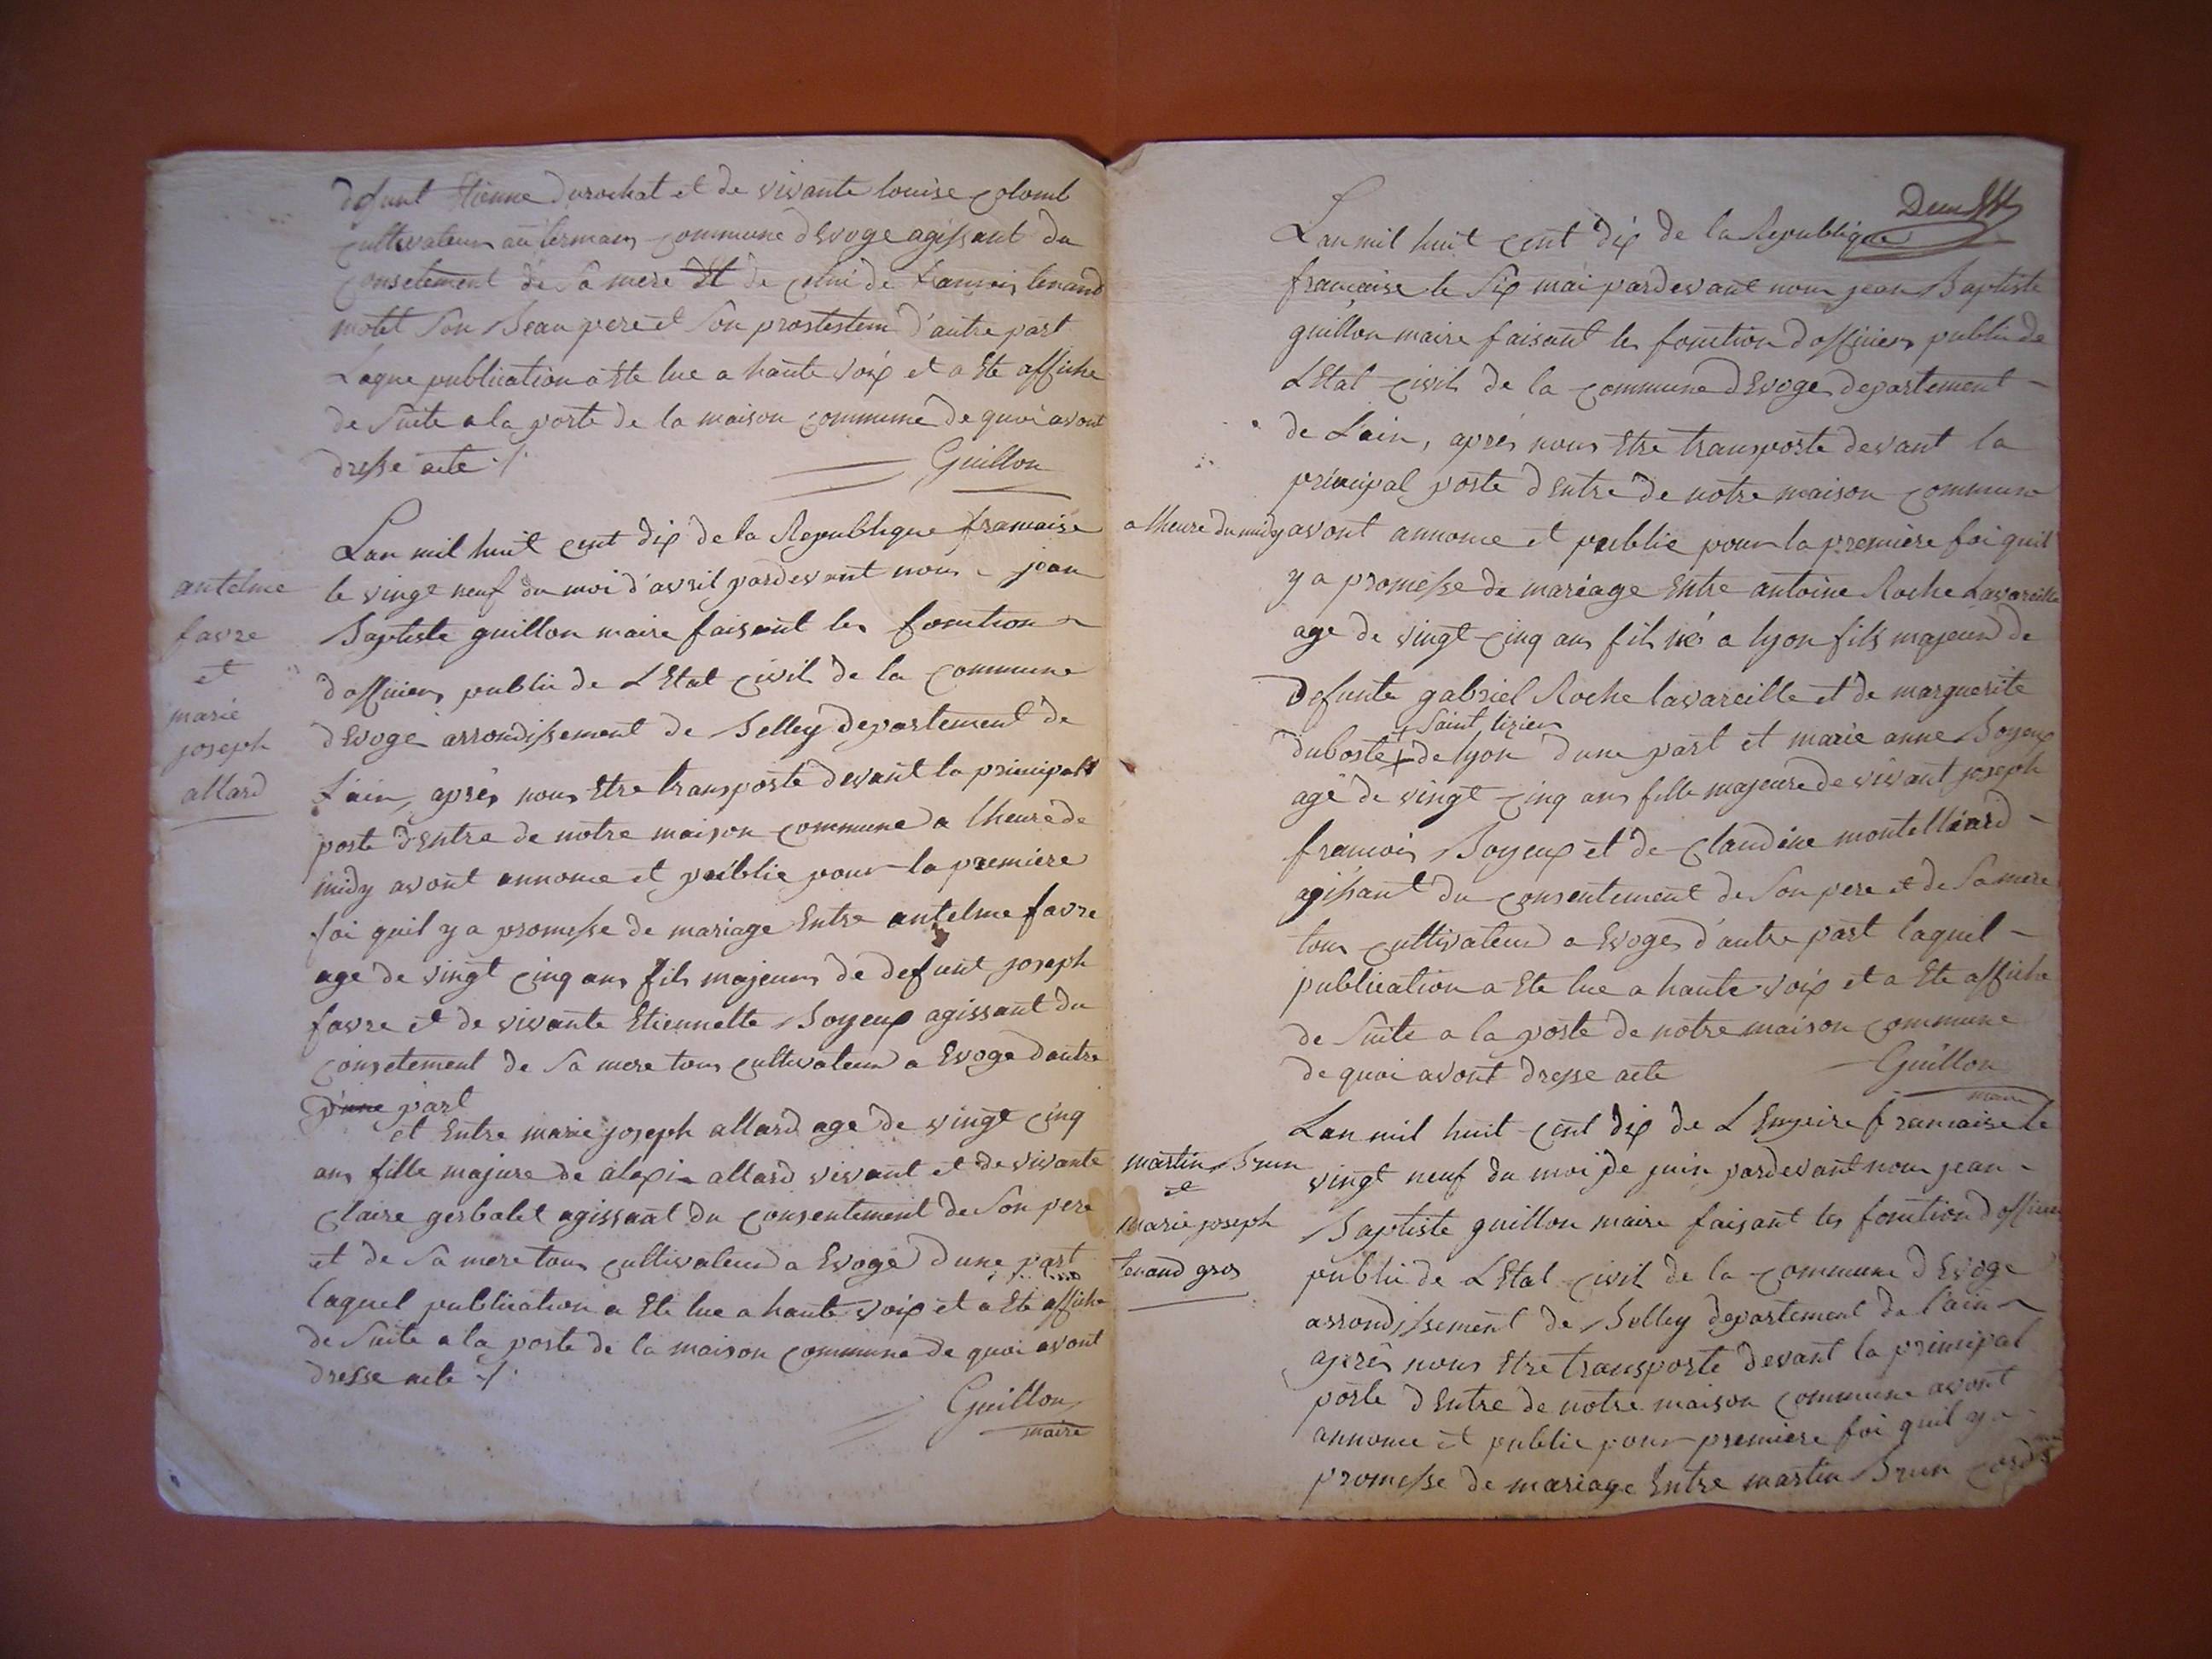 defunt Etienne durochat et de vivante louise colomb
cultivateurs au termans commune dEvoge agissant du
consetement de Sa mere Et de celui de francois tenand
motet Son Beau pere et Son protestem d'autre part
Laque publication a Ete lue a haute voix et a Ete affiche
de Suite a la porte de la maison commune de quoi avont
dresse acte ./.
Guillon
antelme
favre
et
marie
joseph
allard
Lan mil huit cent dix de la Republique francaise
le vingt neuf du moi d'avril pardevant nous jean
Baptiste guillon maire faisant les fonction
d officiers public de LEtat civil de la commune
dEvoge arrondissement de Belley departement de
L'ain, après nous Etre transporte devant la principall
porte d'Entre de notre maison commune a lheure de
midy avont annonce et publie pour la premiere
foi quil y a promesse de mariage Entre antelme favre
age de vingt cinq ans fils majeurs de defunt joseph
favre et de vivante Etiennette Boyeux agissant du
consetement de Sa mere tous cultivateurs a Evoge dautre
d'une part
et Entre marie joseph allard age de vingt cinq
ans fille majure de alexi allard vivant et de vivante
Claire gerbalet agissant du consentement de Son pere
et de Sa mere tous cultivateurs a Evoge d'une part
laquel publication a Ete lue a haute voix et a Ete affiche
de Suite a la porte de la maison commune de quoi avont
dresse acte ./.
Guillon
maire
Lan mil huit cent dix de la Republique
francaise le Six mai pardevant nous jean Baptiste
guillon maire faisant les fonction dofficiers public de
LEtat civil de la commune dEvoge departement
de L'ain, après nous Etre transporte devant la
principal porte dEntre de notre maison commune
a lheure du midy avont annonce et publie pour la premiere foi quil
y a promesse de mariage Entre antoine Roche Lavareille
age de vingt cinq ans fils né a lyon fils majeur de
defunte gabriel Roche lavareille et de marguerite
+ Saint
duboste + de lyon d'une part et marie anne Boyeux
agé de vingt cinq ans fille majeure de vivant joseph
francois Boyeux et de Claudine montelliard
agissant du consentement de Son pere et de Sa mere
tous cultivateurs a Evoges d'autre part laquel
publication a Ete lue a haute voix et a Ete affiche
de Suite a la porte de notre maison commune
de quoi avont dresse acte
Guillon
maire
martin Brun
et
marie joseph
tenand gros
Lan mil huit cent dix de LEmpire francaise le
vingt neuf du moi de juin pardevant nous jean
Baptiste guillon maire faisant les fonction dofficiers
public de LEtat civil de la commune dEvoge
arrondissement de Belley departement de l'ain
après nous Etre transporte devant la principal
porte dEntre de notre maison commune avont
annonce et publie pour premiere foi quil y a
promesse de mariage Entre martin Brun